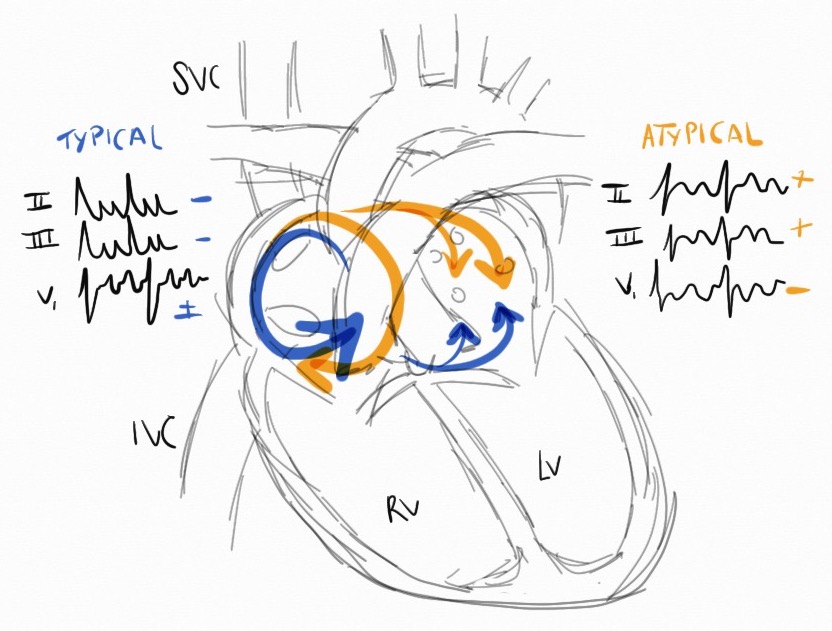 SVC
TYPICAL
II -
III -
V1 ±
ATYPICAL
II +
III +
V1 -
IVC
RV
LV